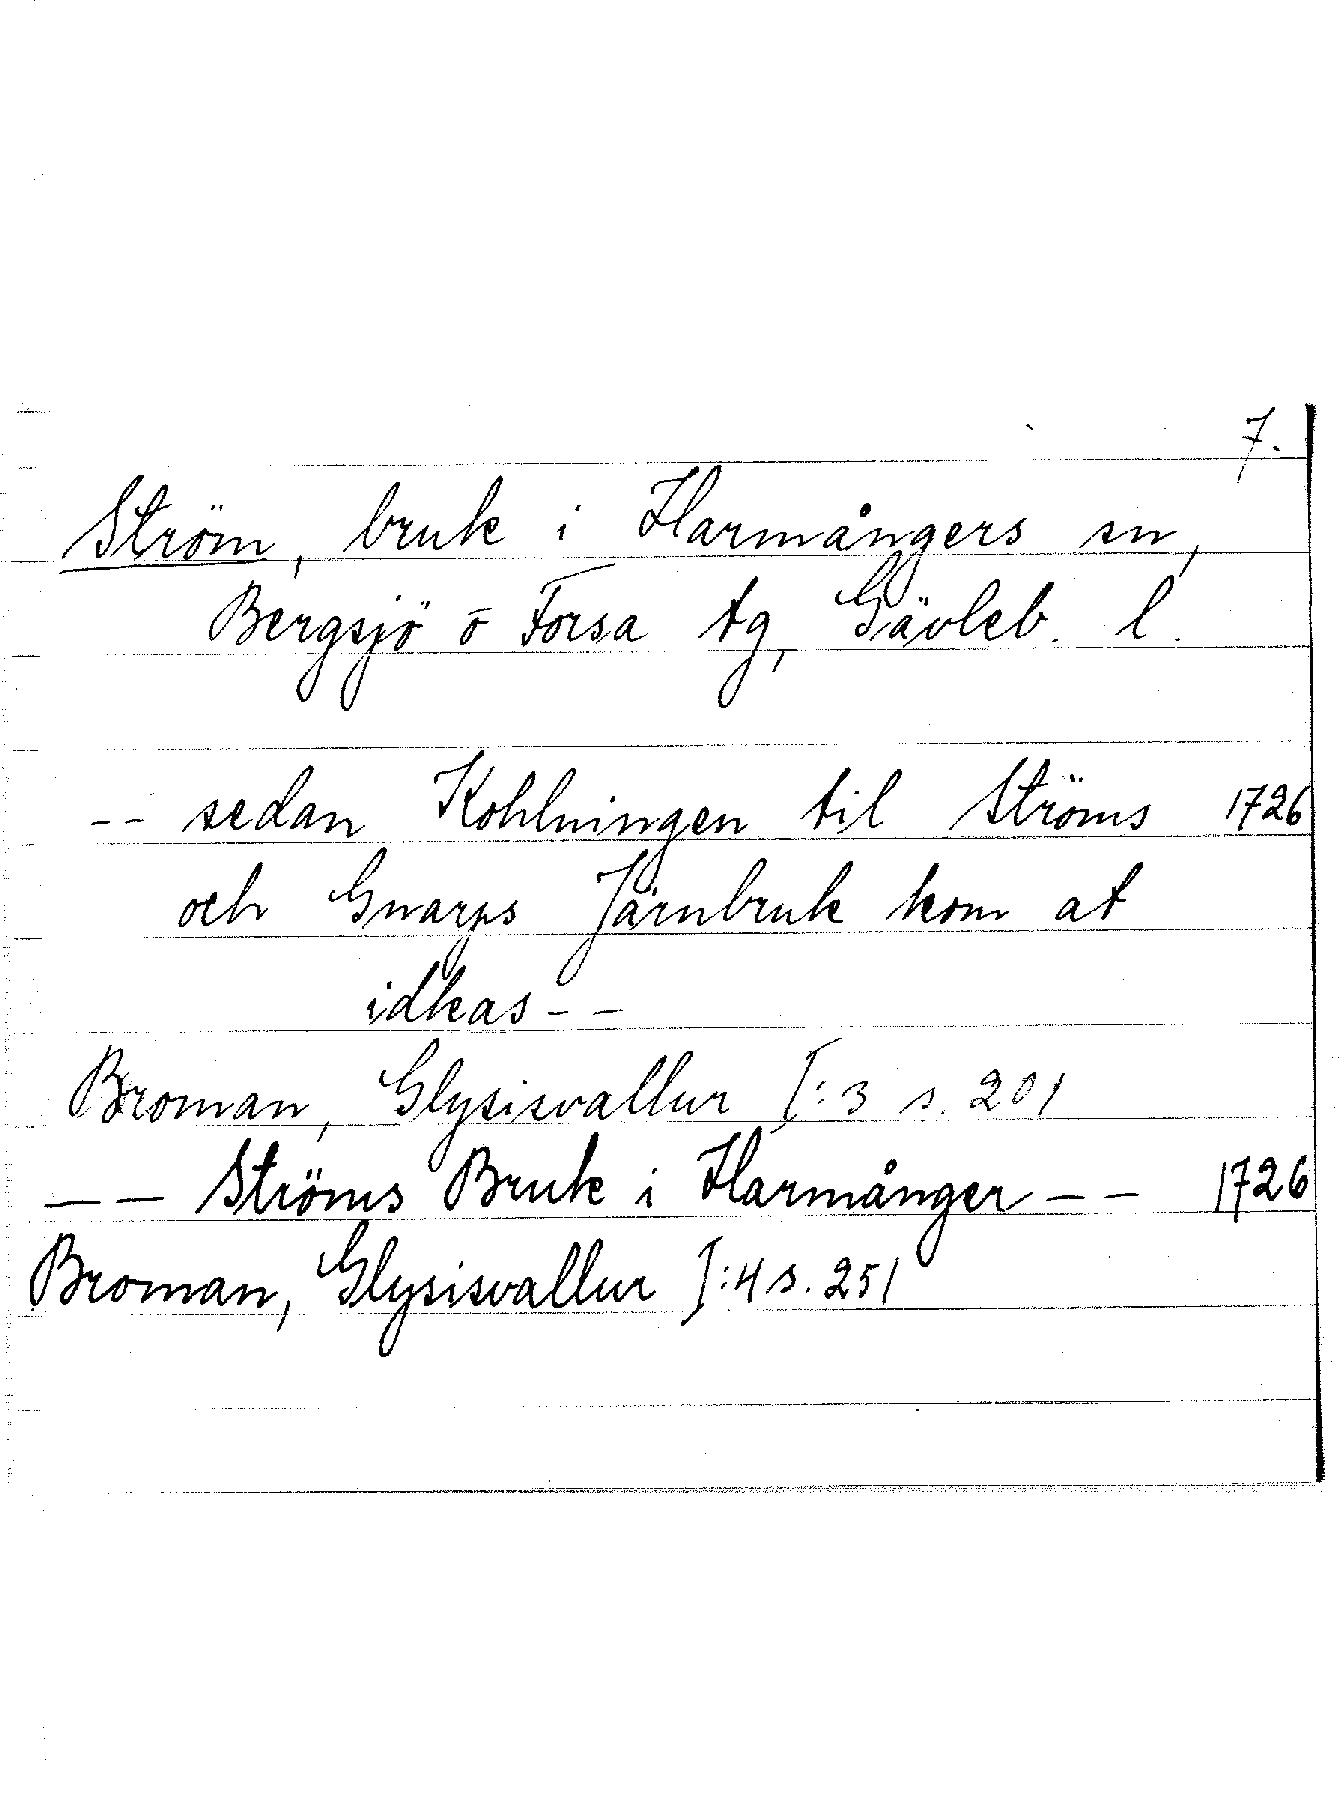 7.
Ström, bruk i Harmångers sn,
Bergsjö o Forsa tg, Gävleb. l.
-- sedan Kohlningen til Ströms 1726
och Gnarps Järnbruk kom at
idkas --
Broman, Glysisvallur I:3 s. 201
-- Ströms Bruk i Harmånger -- 1726
Broman, Glysisvallur I:4 s. 251